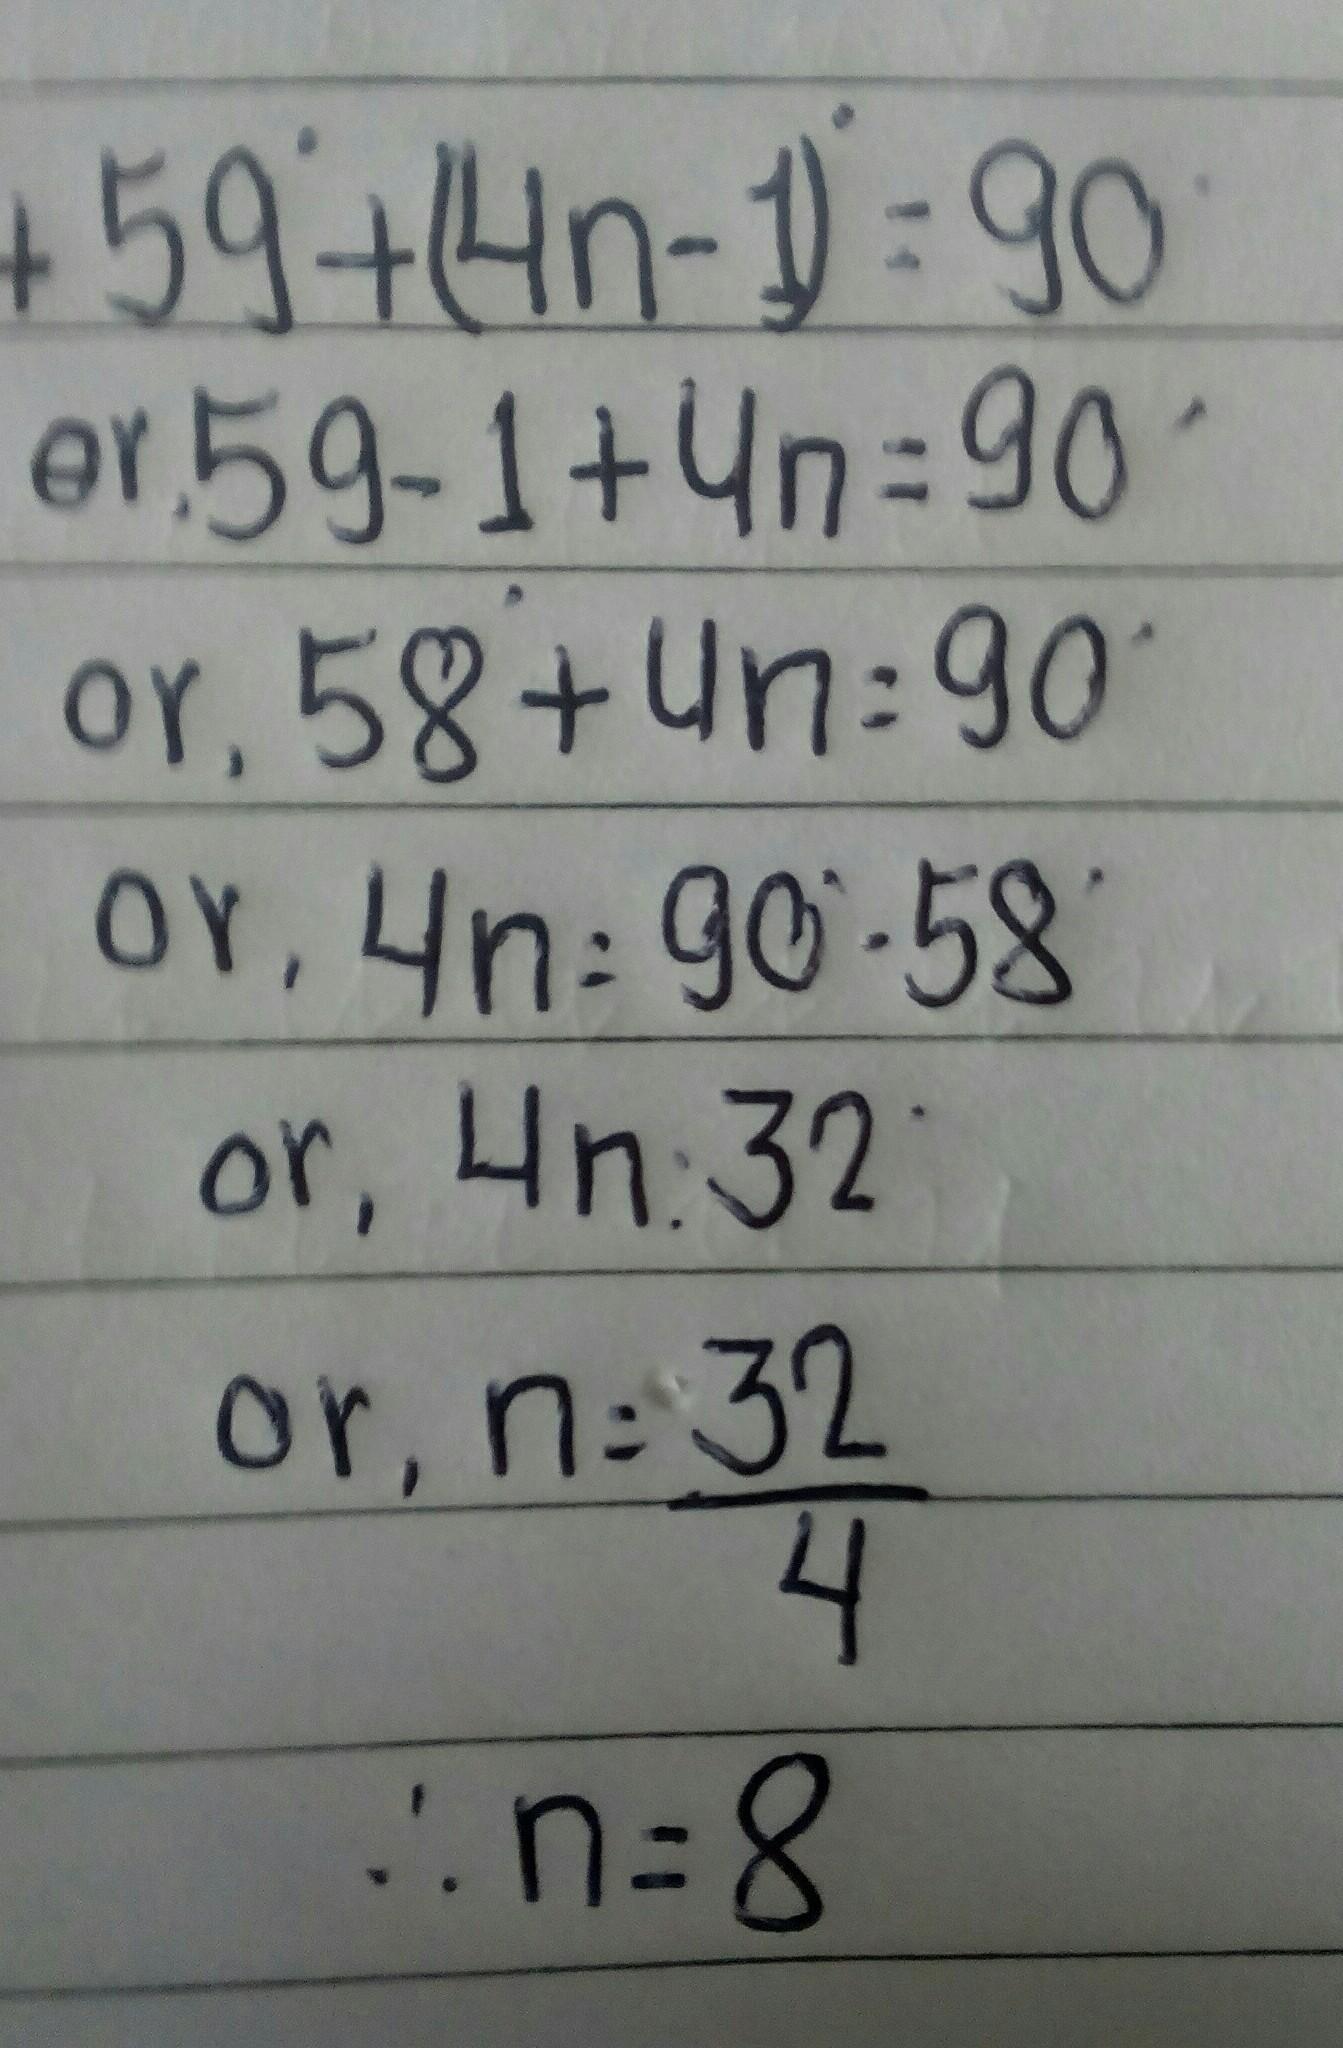 + 59° + (4n - 1)° = 90°
or. 59 - 1 + 4n = 90°
or, 58° + 4n = 90°
or, 4n = 90° - 58°
or, 4n = 32°
or, n = 32/4
∴ n = 8